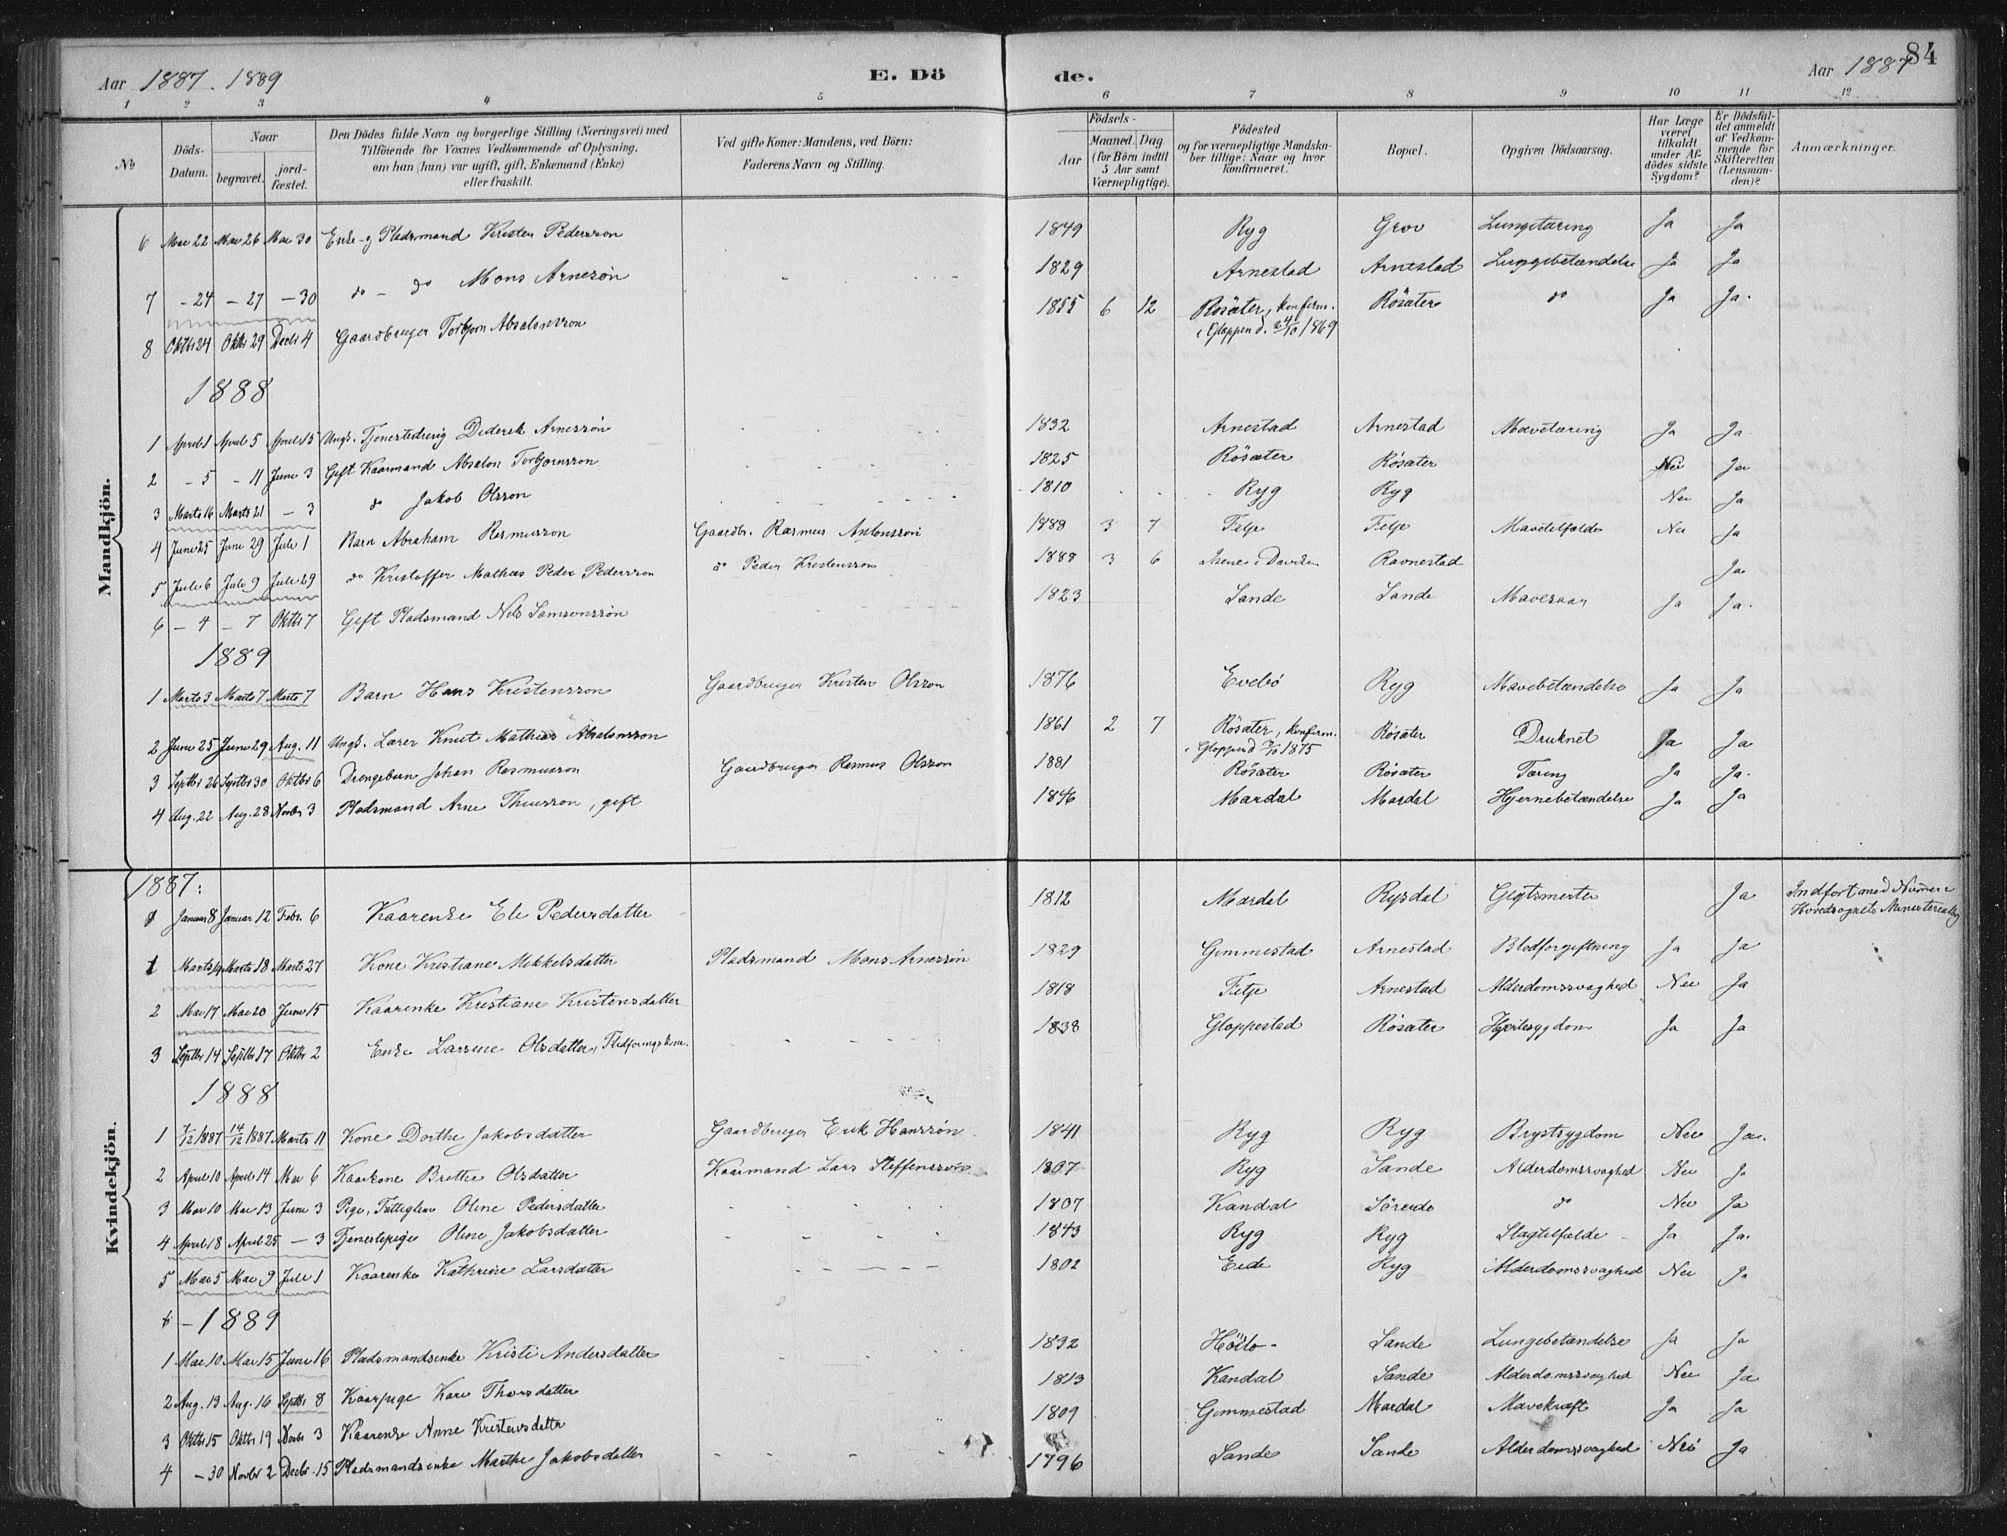 84
Aar 1887. 1889 E. Döde. Aar 1887
1 2 3 4 5 6 7 8 9 10 11 12
No
Döds-Datum.
Naar
begravet.
jordfæstet.
Den Dödes fulde Navn og borgerlige Stilling (Næringsvei) med Tilföiende for Voxnes Vedkommende af Oplysning, om han (hun) var ugift, gift, Enkemand (Enke) eller fraskilt.
Ved gifte Koner: Mandens, ved Börn: Faderens Navn og Stilling.
Födsels-
Aar
Maaned. Dag.
(for Börn indtil 5 Aar samt Værnepligtige).
Födested
og for værnepligtige Mandskaber tillige: Naar og hvor konfirmeret.
Bopæl.
Opgiven Dödsaarsag.
Har Læge været tilkaldt under Afdödes sidste Sygdom?
Er Dödsfaldet anmeldt af Vedkommende for Skifteretten (Lensmanden)?
Anmærkninger.
Mandkjön.
6 Mai 22 Mai 26 Mai 30 Enke- og Pladsmand Kristen Pedersson 1849 Ryg Grov Lungetæring Ja Ja
7 - 24 - 27 - 30 do - do Mons Arnesön 1829 Arnestad Arnestad Lungebetændelse Ja Ja
8 Oktbr 24 Oktbr 29 Decbr 4 Gaardbruger Torbjørn Absalonsson 1855 6 12 Rösæter, konfirm. i Gloppen d. 24/10 1869 Rösæter do Ja Ja.
1888
1 April 1 April 5 April 15 Ungk. Tjenestedreng Diderik Arnessön 1832 Arnestad Arnestad Mavetæring Ja Ja.
2 - 5 - 11 Juni 3 Gift Kaarmand Absalon Torbjørnsson 1825 Rösæter Rösæter Nei Ja
3 Marts 16 Marts 21 - 3 do Jakob Olsson 1810 Ryg Ryg Nei Ja
4 Juni 25 Juni 29 Juli 1 Barn Abraham Rasmusson Gaardbr. Rasmus Antonssön 1888 3 7 Felje Felje Mavetilfælde Nei Ja
5 Juli 6 Juli 9 Juli 29 do Kristoffer Mathias Peder Pedersson do Peder Kristensson 1888 3 6 Isene i Daviken Ravnestad Ja
6 - 4 - 7 Oktbr 7 Gift Pladsmand Nils Samsonssön 1823 Sande Sande Mavesaar Ja Ja.
1889
1 Marts 3 Marts 7 Marts 7 Barn Hans Kristensson Gaardbruger Kristen Olsson 1876 Evebö Ryg Mavebetændelse Ja Ja
2 Juni 25 Juni 29 Aug. 11 Ungk. Lærer Knut Mathias Absalonsson 1861 2 7 Rösæter, konfirm. i Gloppen d. 3/10 1875 Rösæter Druknet Ja Ja
3 Septbr 26 Septbr 30 Oktbr 6 Drengebarn Johan Rasmusson Gaardbruger Rasmus Olsson 1881 Rösæter Rösæter Tæring Ja Ja.
4 Aug. 22 Aug. 28 Novbr 3 Pladsmand Arne Theusson, gift 1846 Mardal Mardal Hjernebetændelse Ja Ja
Kvindekjön.
1887:
Januar 8 Januar 12 Febr. 6 Kaarenke Eli Pedersdatter 1812 Mardal Rysdal Gigtsmerter Ja Indført med Numer i Hovedsognets Ministerialbog
1 Marts 14 Marts 18 Marts 27 Kone Kristiane Mikkelsdatter Pladsmand Mons Arnessön 1829 Gimmestad Arnestad Blodforgiftning Ja Ja
2 Mai 17 Mai 20 Juni 15 Kaarenke Kristiane Kristensdatter 1818 Felje Arnestad Alderdomssvaghed Nei Ja
3 Septbr 14 Septbr 17 Oktbr 2 Enke Larsine Olsdatter, Fledføringskone. 1838 Gloppestad Rösæter Hjertesygdom Ja Ja
1888
1 7/12 1887 14/12 1887 Marts 11 Kone Dorthe Jakobsdatter Gaardbruger Erik Hanssön 1841 Ryg Ryg Brystsygdom Nei Ja.
2 April 10 April 14 Mai 6 Kaarkone Brithe Olsdatter Kaarmand Lars Steffenssön 1807 Ryg Sande Alderdomssvaghed Nei Ja
3 Mai 10 Mai 13 Juni 3 Pige, Fattiglem Oline Pedersdatter 1807 Kandal Söreide do Nei Ja
4 April 18 April 25 - 3 Tjenestepige Oline Jakobsdatter 1843 Ryg Ryg Slagtilfælde Ja Ja.
5 Mai 5 Mai 9 Juli 1 Kaarenke Kathrine Larsdatter 1802 Eide Ryg Alderdomssvaghed Nei Ja
6 - 1889
1 Mai 10 Mai 15 Juni 16 Pladsmandsenke Kristi Andersdatter 1832 Sande Lungebetændelse Ja Ja
2 Aug. 13 Aug. 16 Septbr 8 Kaarpige Kari Thorsdatter 1813 Kandal Sande Alderdomssvaghed Nei Ja
3 Oktbr 15 Oktbr 19 Novbr 3 Kaarenke Anne Kristensdatter 1809 Gimmestad Mardal Mavekræft Ja Ja
4 - 30 Novbr 2 Decbr. 15 Pladsmandsenke Marthe Jakobsdatter 1796 Sande Sande Alderdomssvaghed Nei Ja